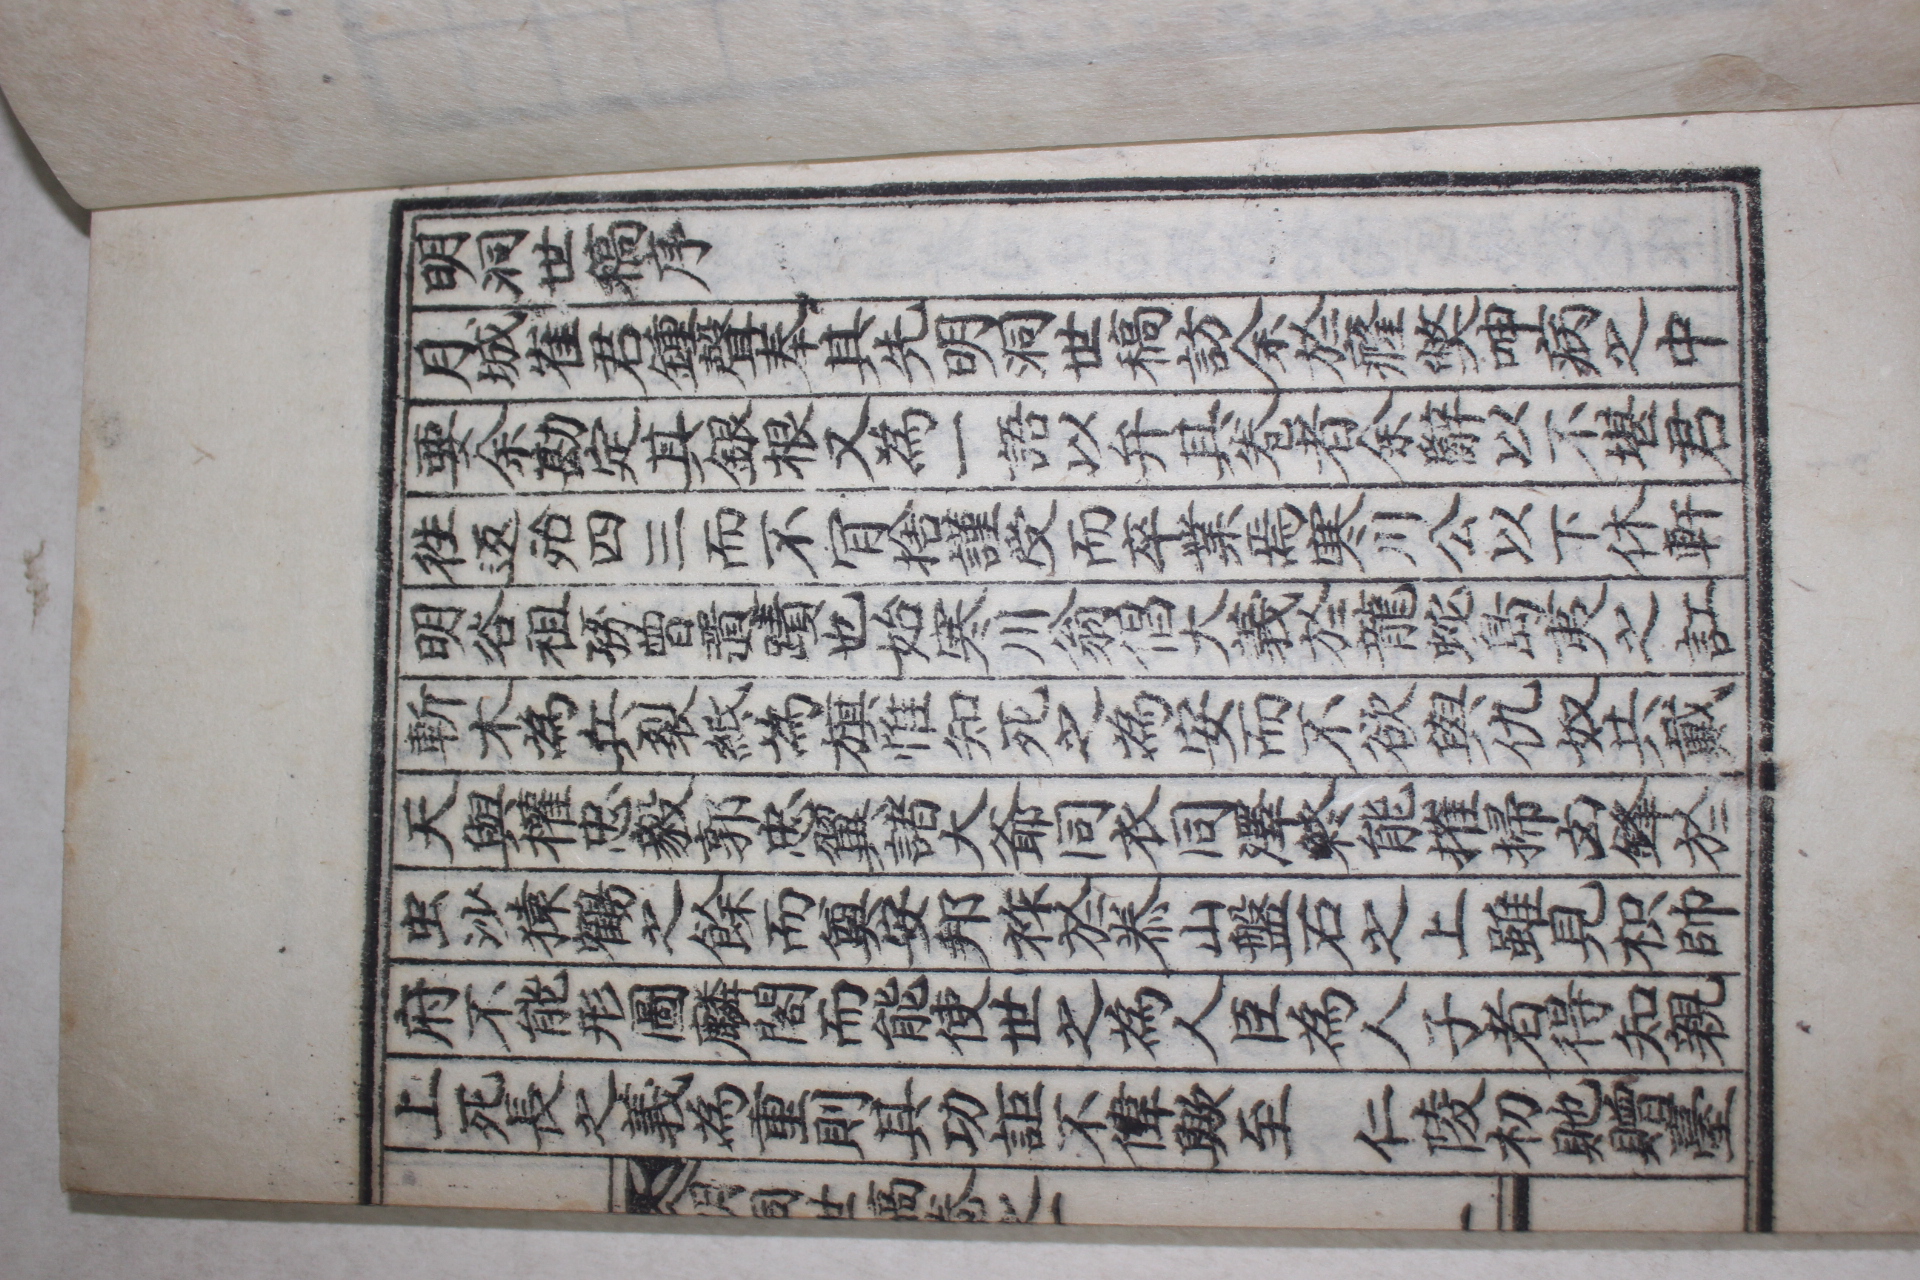 明洞世稿序
月城崔君鍾聲奉其先明洞世稿訪余於癃獘呻病之中
要余勘定其銀根又為一語以弁其卷者余辭以不堪君
徃返殆四三而不肎捨謹受而卒業焉寒川公以下休軒
明谷祖孫曾遺蹟也始寒川翁倡大義於龍蛇島夷之訌
斬木為兵裂紙為旗惟知死之為安而不欲與仇奴共戴
天與權忠毅郭忠翼諸大爺同衣同澤終能摧掃凶鋒於
虫沙猿鶴之餘而奠安邦祚於泰山盤石之上雖見枳帥
府不能形圖麟閣而能使世之為人臣為人子者得知親
上死長之義為重則其功詎不偉歟至　仁陵初貤贈臺
明洞世稿卷之一